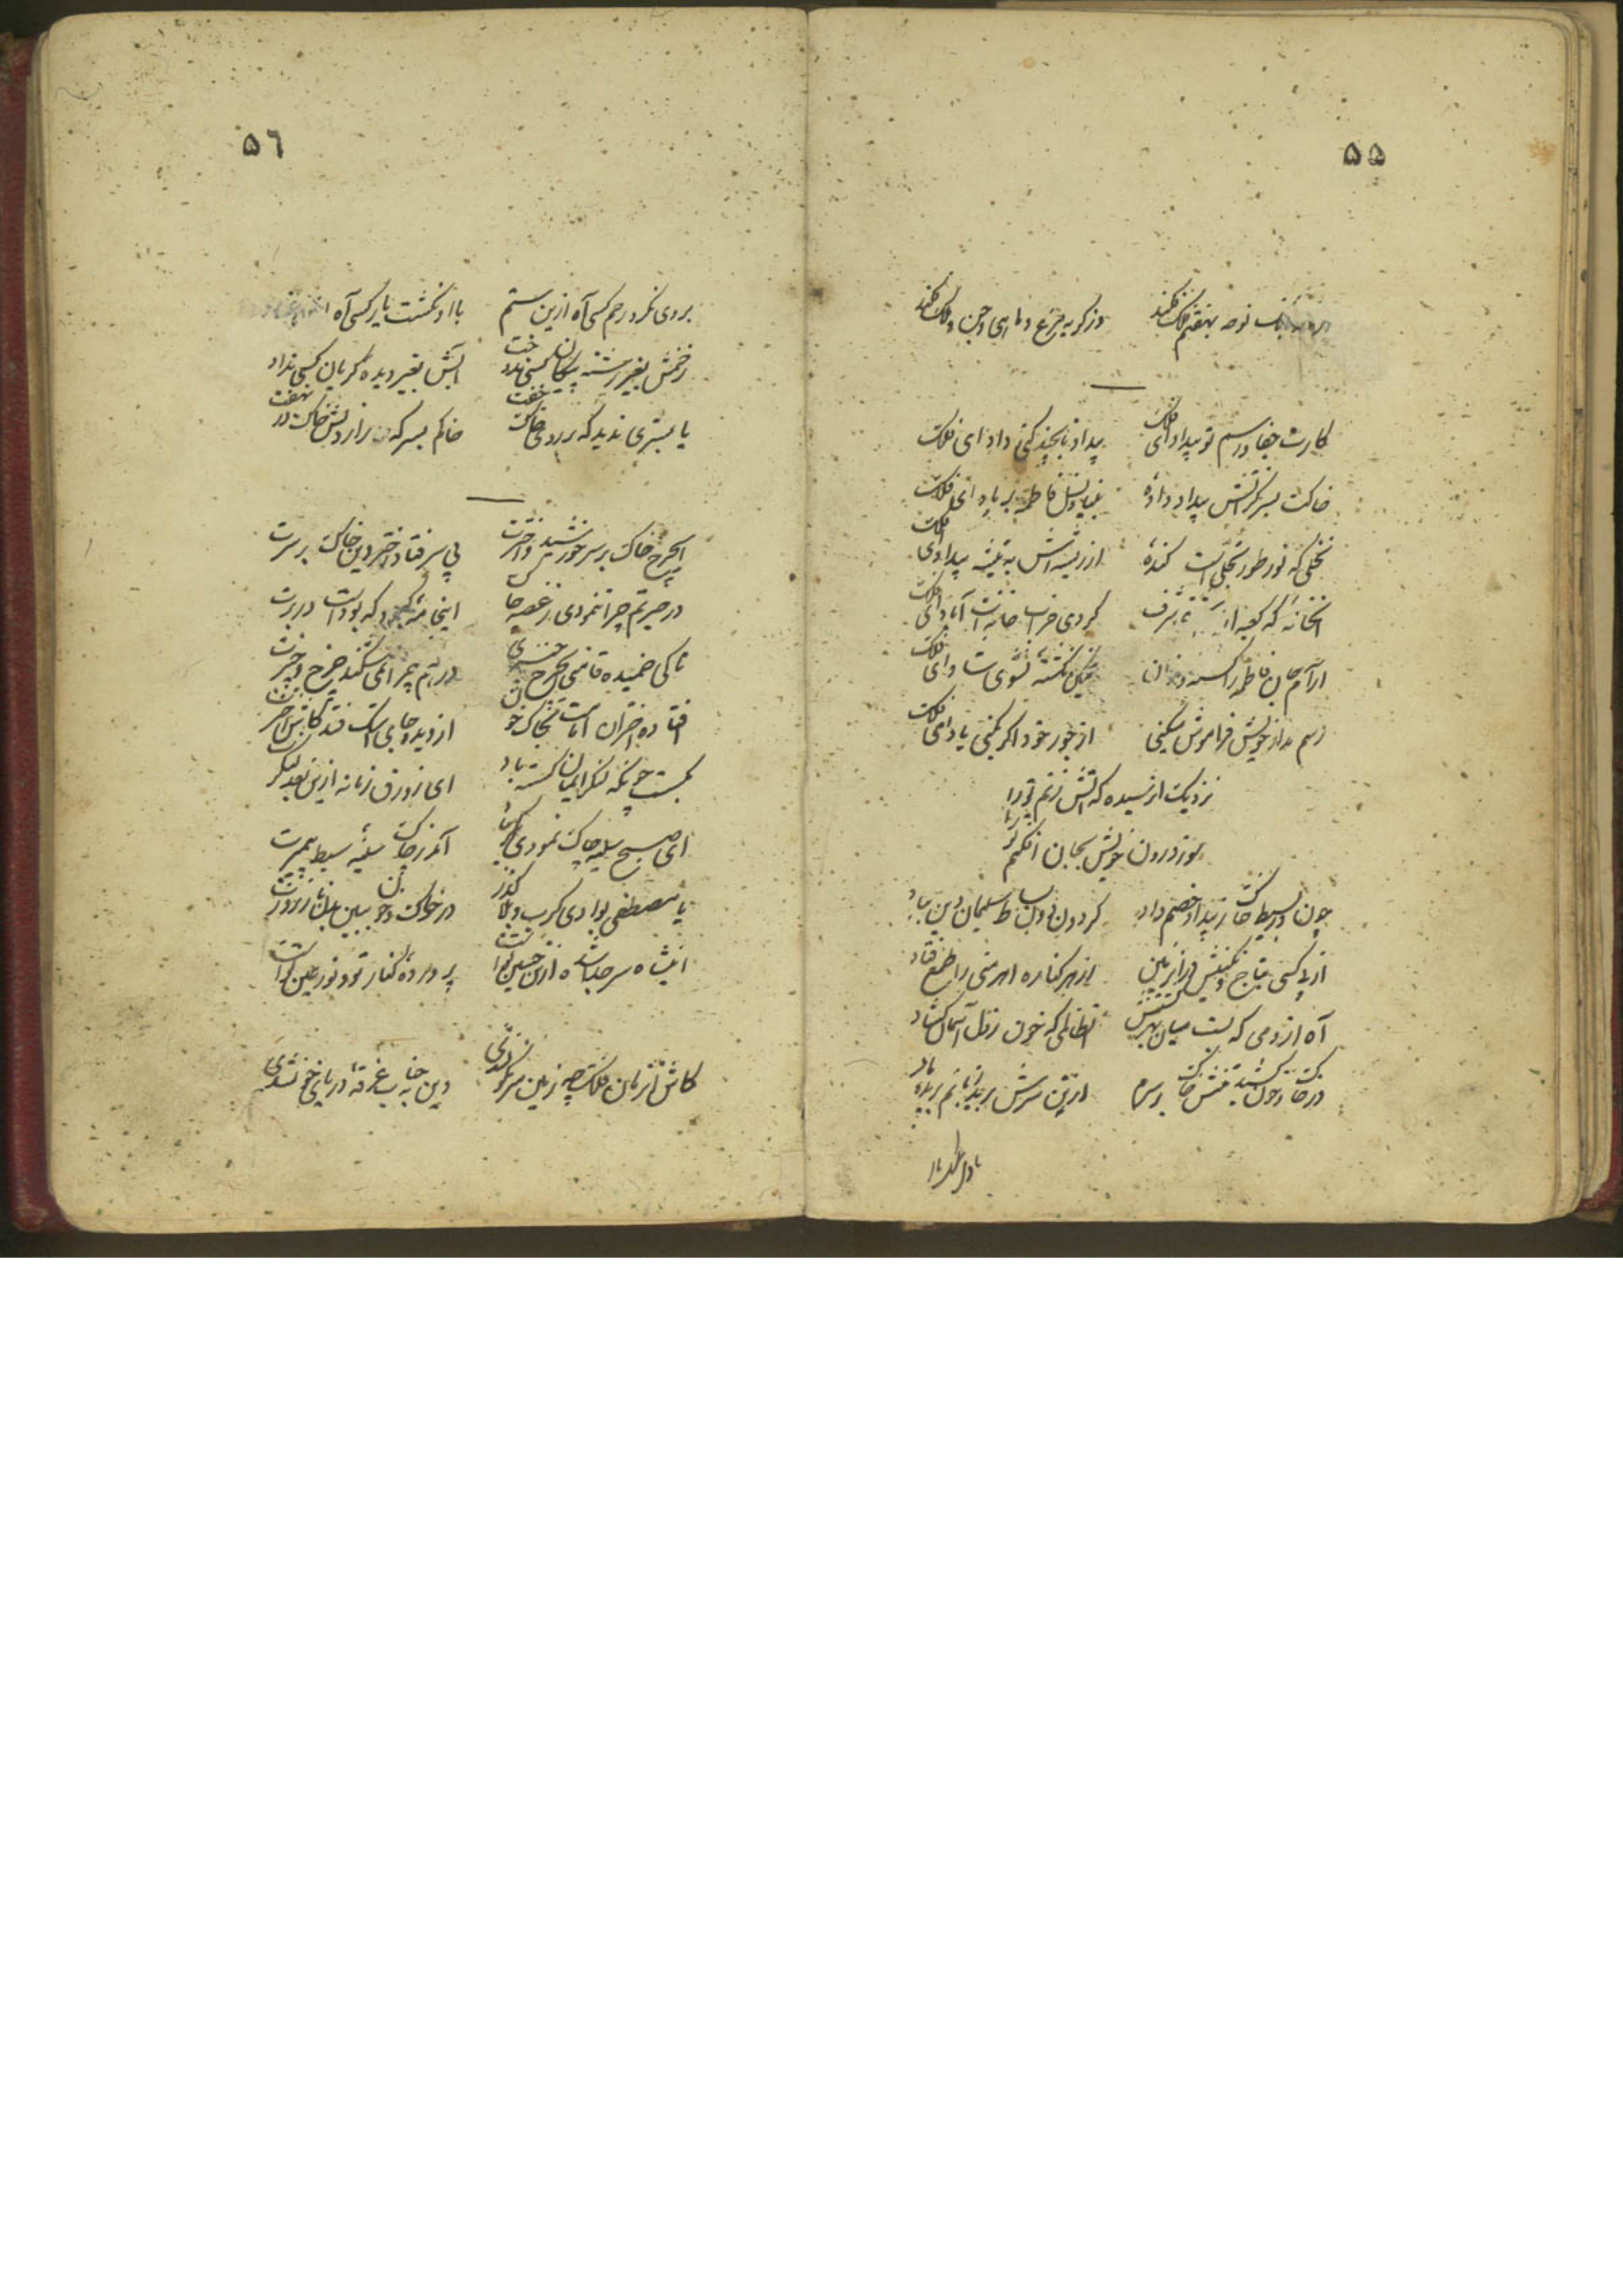 ۵۵
بانگ نوحه بهفتم فلک فکند وز گریه مرغ و ماهی و جن و ملک فکند
کارت جفا و رسم تو بیداد ای فلک بیداد تا بچند کنی داد ای فلک
خاکت بسر که آتش بیداد داده بنیاد نسل فاطمه بر باد ای فلک
نخلی که نور طور تجلی است کنده از ریشه اش به تیشه بیداد ای فلک
آنخانه که کعبه از شرف کردی خراب خانه ات آباد ای فلک
آرام جان فاطمه را کشته غمگین نگشته نشوی شاد ای فلک
رسم مدار خویش فراموش میکنی از جور خود اگر بکنی یاد ای فلک
نزدیک از رسیده که آتش زنم تو را
سوز درون خویش بجان افکنم تو را
چون در بسیط خاک ز بیداد خصم داد گردون دون بساط سلیمان دین بباد
از بی کسی بتاج و نگینش در آن زمین از هر کناره اهرمنی را طمع فتاد
آه از دمی که بست میان بهر کشتنش آن ظالمی که خون ز دل آسمان گشاد
در خاک و خون کشید تنش خاک بر سرم از تن سرش برید زبانم بریده باد
با دل
۵٦
بر وی نکرد رحم کسی آه ازین ستم با او نگشت یار کسی آه
زخمش بغیر رشته پیکان کسی ندوخت آبش بغیر دیده گریان کسی نداد
یا بستری ندید که بر روی خاک خفت خاکم بسر که در نهفت
ای چرخ خاک بر سر خورشید و اخترت بی سر فتاد خسرو دین خاک بر سرت
در حیرتم چرا ننمودی ز غصه چاک این جامه کبود که بوده است در برت
تا کی خمیده قامتی ای چرخ در هم چرا نمی شکند چرخ چنبرت
افتاده اختران امامت بخاک و خون از دیده جای اشک فتد کاش اخترت
بگسست چونکه لنگر ایمان گسسته باد ای زورق زمانه ازین بعد لنگرت
ای صبح سینه چاک نمودی آمد ز چاک سینه سبط پیمبرت
یا مصطفی بوادی کرب و بلا گذر در خاک و خون ببین بدن نازپرورت
این شاه سر جدا شده از تن حسین تست پرورده کنار تو و نور عین تست
کاش آنزمان فلک چو زمین سرنگون شدی وین خیمه غرقه دریای خون شدی